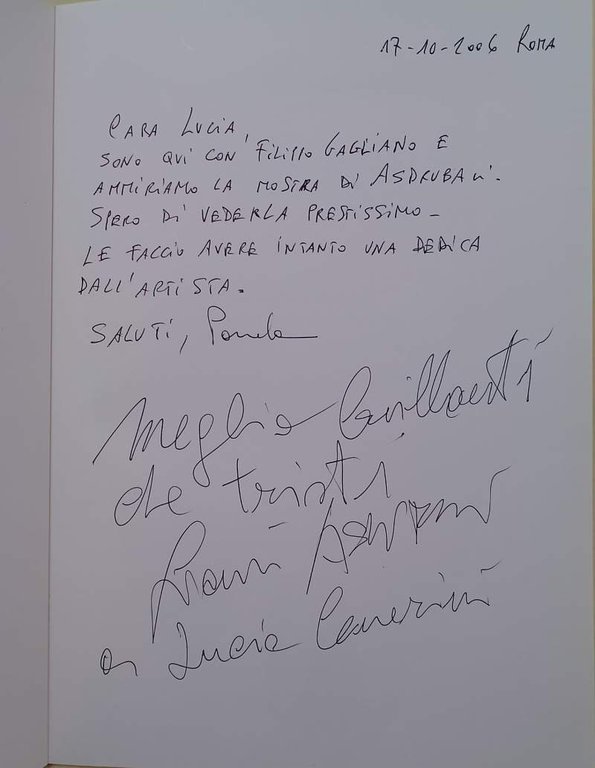 17-10-2006 ROMA
CARA LUCIA,
SONO QUI CON FILIPPO GAGLIANO E
AMMIRIAMO LA MOSTRA DI ASDRUBALI.
SPERO DI VEDERLA PRESTISSIMO -
LE FACCIO AVERE INTANTO UNA DEDICA
DALL'ARTISTA.
SALUTI,
Meglio brillanti
che tristi
Gianni Asdrubali
a Lucia